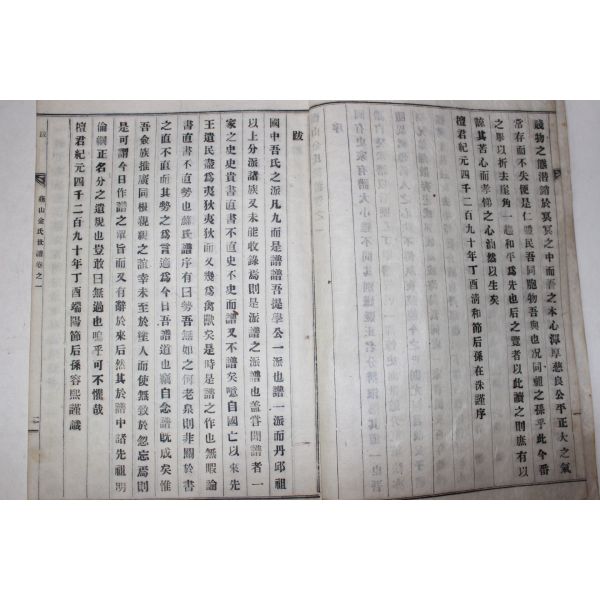 賤物之態潛銷於冥冥之中而吾之本心渾厚慈良公平正大之氣
常存而不失便是仁體民吾同胞物吾與也况同祖之孫乎此今番
之單以折去崖角一趨和平爲先也后之覽者以此讀之則庶有以
諒其苦心而孝悌之心油然以生矣
檀君紀元四千二百九十年丁酉淸和節后孫在洙謹序
跋
國中吾氏之派凡九而是譜吾提學公一派也譜一派而丹邱祖
以上分派諸族又未能收錄焉則是派譜之派譜也盖嘗聞譜者一
家之史史貴書直書不直史不史而譜又不譜矣噫自國亡以來先
王遺民盡爲夷狄夷狄而又幾爲禽獸矣是時是譜之作也無暇論
書直書不直勢也蘇氏譜序有曰勢吾無如之何老泉則非關於書
之直不直而其勢之爲言適爲今日吾譜道也竊自念譜旣成矣惟
吾僉族推廣同根親親之誼幸未至於塗人而使無致於忽忘焉則
是可謂今日作譜之單旨而又有辭於來后然其於譜中諸先祖明
倫綱正名分之遺規也豈敢曰無過也嗚乎可不惟哉
檀君紀元四千二百九十年丁酉端陽節后孫容熙謹識
跋
義山金氏世譜卷之一